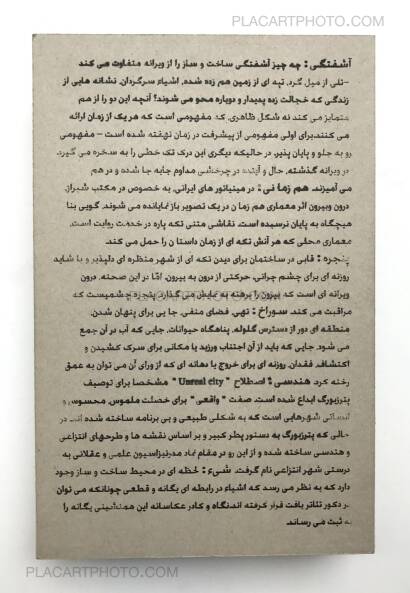 PLACARTPHOTO.COM
آشفتگی : چه چیز آشفتگی ساخت و ساز را از ویرانه متفاوت می کند
-تلی از میل گرد، تپه ای از زمین هم زده شده، اشیاء سرگردان، نشانه هایی از
زندگی که خجالت زده پدیدار و دوباره محو می شوند؟ آنچه این دو را از هم
متمایز می کند نه شکل ظاهری، که مفهومی است که هر یک از زمان ارائه
می کنند.برای اولی مفهومی از پیشرفت در زمان نهفته شده است – مفهومی
رو به جلو و پایان پذیر. در حالیکه دیگری این درک تک خطی را به سخره می گیرد.
در ویرانه گذشته، حال و آینده در چرخشی مداوم جابه جا شده و در هم
می آمیزند. هم زمانی : در مینیاتور های ایرانی، به خصوص در مکتب شیراز،
درون وبیرون اثر معماری هم زمان در یک تصویر بازنمایانده می شوند. گویی بنا
هیچگاه به پایان نرسیده است. نقاشی متنی تکه پاره در خدمت روایت است.
معماری محلی که هر آنش تکه ای از زمان داستان را حمل می کند.
پنجره : قابی در ساختمان برای دیدن تکه ای از شهر، منظره ای دلپذیر و یا شاید
روزنه ای برای چشم چرانی، حرکتی از درون به بیرون. امّا در این صحنه، درون
ویرانه ای است که بیرون را برهنه به نمایش می گذارد. پنجره چشمیست که
مراقبت می کند. سوراخ : تهی، فضای منفی، جا یی برای پنهان شدن.
منطقه ای دور از دسترس گلوله، پناهگاه حیوانات، جایی که آب در آن جمع
می شود. جایی که باید از آن اجتناب ورزید یا مکانی برای سرک کشیدن و
اکتشاف. فقدان، روزنه ای برای خروج یا دهانه ای که از ورای آن می توان به عمق
رخنه کرد. هندسی : اصطلاح "Unreal city" مشخصا برای توصیف
پترزبورگ ابداع شده است. صفت "واقعی" برای خصلت ملموس، محسوس و
انسانی شهرهایی است که به شکلی طبیعی و بی برنامه ساخته شده اند. در
حالی که پترزبورگ به دستور پطر کبیر و بر اساس نقشه ها و طرحهای انتزاعی
و هندسی ساخته شده و از این رو در مقام نماد مدرنیزاسیون علمی و عقلانی به
درستی شهر انتزاعی نام گرفت. شیء : لحظه ای در محیط ساخت و ساز وجود
دارد که به نظر می رسد که اشیاء در رابطه ای یگانه و قطعی چونانکه می توان
در دکور تئاتر یافت قرار گرفته اند.نگاه و کادر عکاسانه این همنشینی یگانه را
به ثبت می رساند.
PLACARTPHOTO.COM